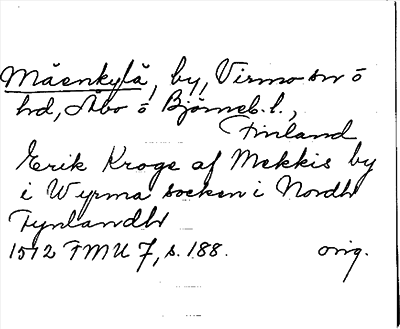 Mäenkylä, by, Virmo sn o
hd, Åbo o Björneb. l.,
Finland
Erik Kroge af Mekkis by
i Wyrma socken i Nordh
Fynlandh
1512 FMU 7, s. 188. orig.